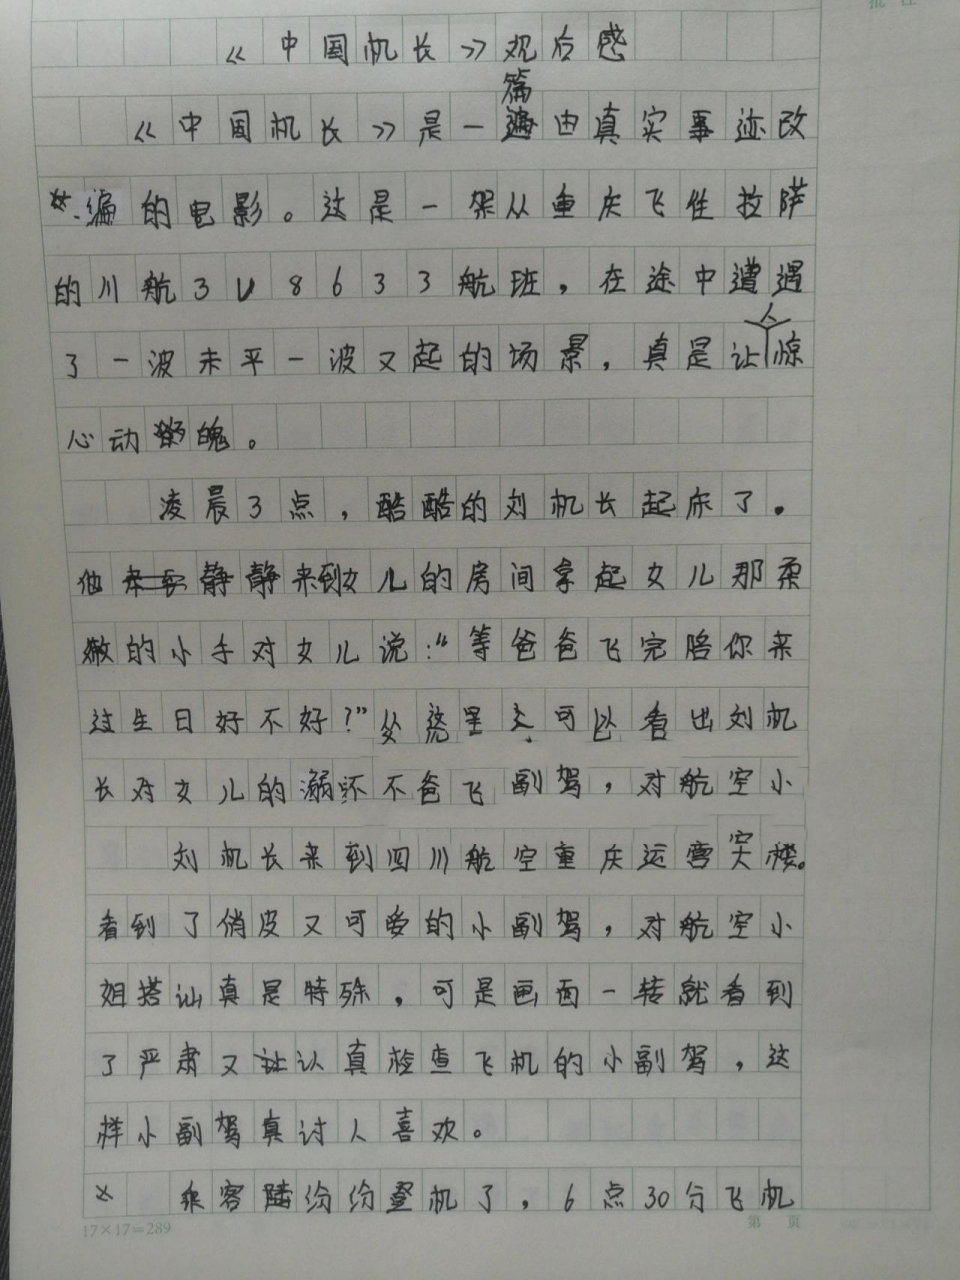 《中国机长》观后感
《中国机长》是一篇由真实事迹改
编的电影。这是一架从重庆飞往拉萨
的川航3U8633航班，在途中遭遇
了一波未平一波又起的场景，真是让人惊
心动魄。
凌晨3点，酷酷的刘机长起床了。
他静静来到女儿的房间拿起女儿那柔
嫩的小手对女儿说："等爸爸飞完陪你来
过生日好不好？"从这里可以看出刘机
长对女儿的溺 不爸飞副驾，对航空小
刘机长来到四川航空重庆运 楼。
看到了俏皮又可爱的小副驾，对航空小
姐搭讪真是特殊，可是画面一转就看到
了严肃又认真检查飞机的小副驾，这
样小副驾真讨人喜欢。
乘客陆纷纷登机了，6点30分飞机
17×17=289
第 页